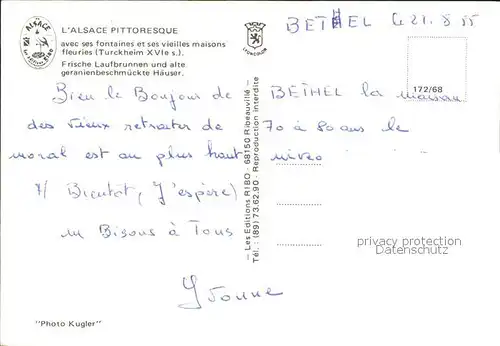 ALSACE
L'ALSACE PITTORESQUE
avec ses fontaines et ses vieilles maisons
fleuries (Turckheim XVIe s.).
Frische Laufbrunnen und alte
geranienbeschmückte Häuser.
BETHEL
172/68
Bien le Bonjour de BETHEL la maison
des vieux retraiter de 70 à 80 ans le
moral est au plus haut niveo
A/ Bientot, (J'espère)
un Bisous à Tous
Yvonne
— Les Editions RIBO - 68150 Ribeauvillé —
Tél.: (89) 73.62.90 - Reproduction interdite
privacy protection
oldthing.de
"Photo Kugler"